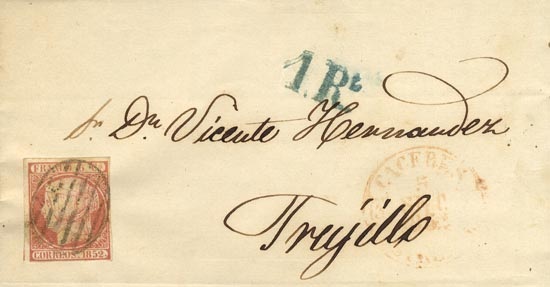 1 Rˢ
Sr. Dn. Vicente Hernandez
Trujillo
FRANCO
CORREOS. 1852.
CACERES
5